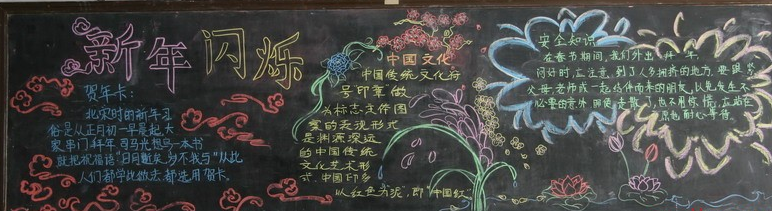 新年闪烁
贺年卡：
北宋时的新年习
俗是从正月初一早晨起，大
家串门拜年司马光想写一本书
就把祝福语"日月逝矣，岁不我与"从此
人们都学此做法，都选用贺卡。
中国文化
中国传统文化符
号印章做
为标志文件图
案的表现形式
是渊源深远
的中国传统
文化艺术形
式，中国印多
以红色为泥，即"中国红"
安全知识
在春节期间，我们外出拜年
问好时，应注意，到了人多拥挤的地方，要跟紧
父母老师或一起结伴而来的朋友，以免发生不
必要的意外，即使走散了，也不用惊慌，应站在
原地耐心等待。